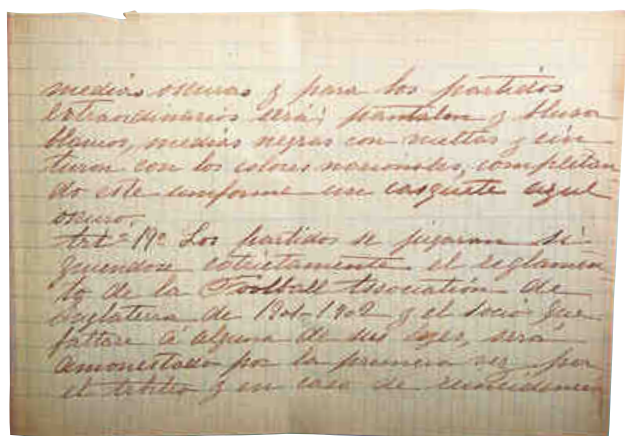 medias oscuras y para los partidos
extraordinarios será: pantalon y blusa
blancos, medias negras con vueltas y cin
turon con los colores nacionales, completan
do este uniforme un casquete azul
oscuro.
Art.º 19º Los partidos se jugaran si-
guiendose estrictamente el reglamen
to de la Football Association de
Inglaterra de 1901-1902 y el socio que
faltase á alguna de sus leyes, será
amonestado por la primera vez por
el árbitro y en caso de reincidencia